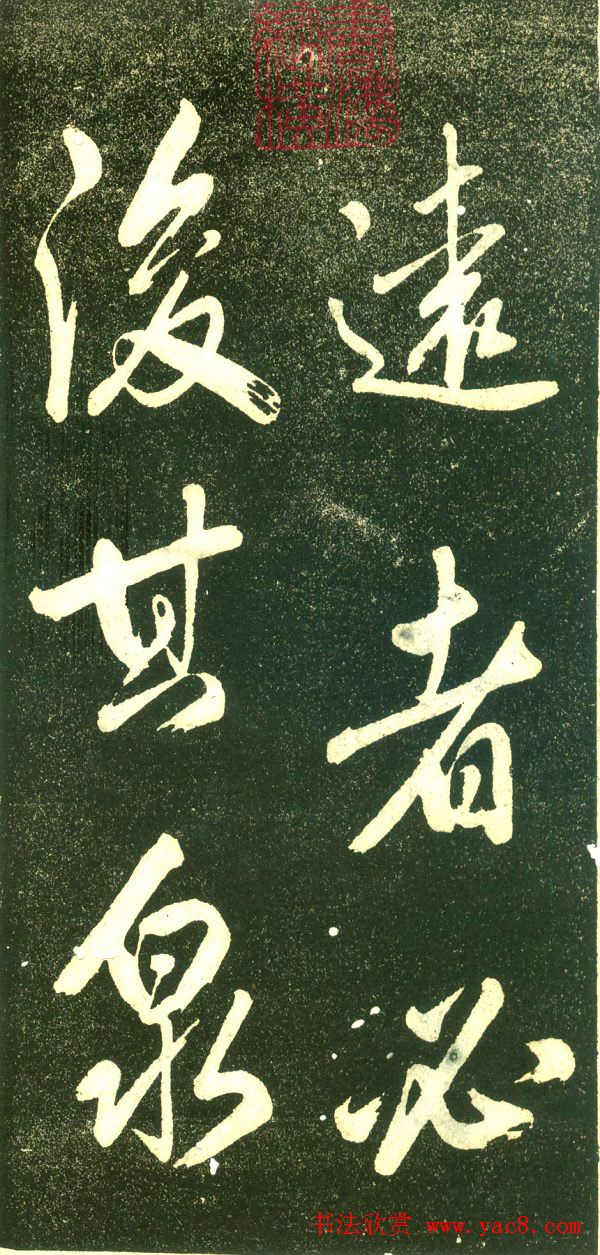 遠者必
浚其泉
书法欣赏 www.yac8.com